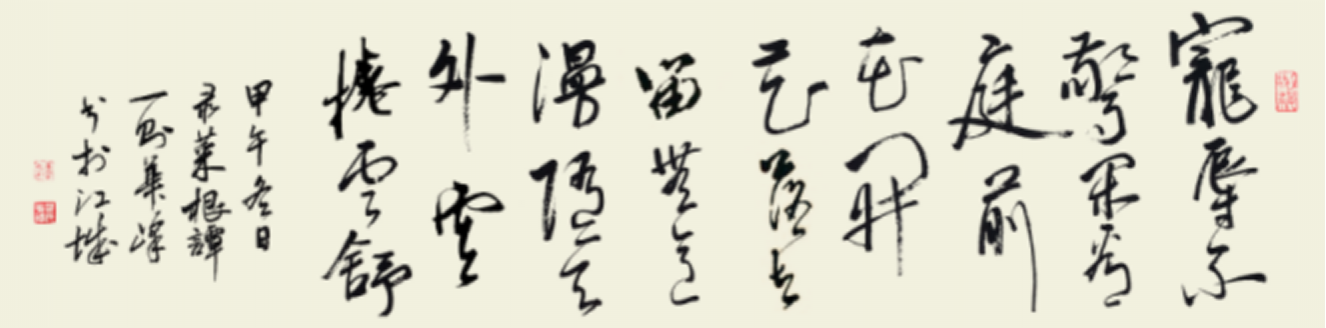 寵辱不
驚閑看
庭前
花開
花落去
留無意
漫隨天
外雲
捲雲舒
甲午冬日
录菜根譚
一則華峰
书於江城